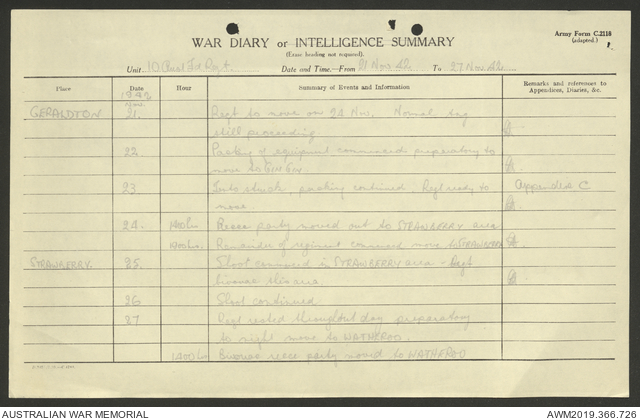 WAR DIARY or INTELLIGENCE SUMMARY
(Erase heading not required).
Army Form C.2118
(adapted.)
Unit 10 Aust Fd Regt. Date and Time—From 21 Nov. 42 To 27 Nov. 42
Place Date Hour Summary of Events and Information Remarks and references to Appendices, Diaries, &c.
1942
GERALDTON Nov. 21. Regt to move on 24 Nov. Normal trg
still proceeding
22 Packing of equipment commenced preparatory to
move to GIN GIN
23 Tents struck, packing continued. Regt ready to Appendix C
move
24 1400 hrs Recce party moved out to STRAWBERRY area
1900 hrs Remainder of regiment commenced move to STRAWBERRY
STRAWBERRY. 25. Shoot commenced in STRAWBERRY area - Regt
bivouac this area
26 Shoot continued
27 Regt rested throughout day preparatory
to night move to WATHEROO.
1400 hrs Bivouac recce party moved to WATHEROO
AUSTRALIAN WAR MEMORIAL
AWM2019.366.726